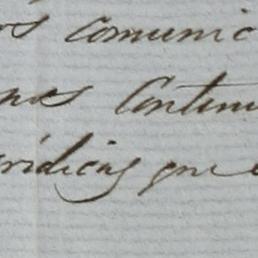 os comunic
nos Continu
ridicas que